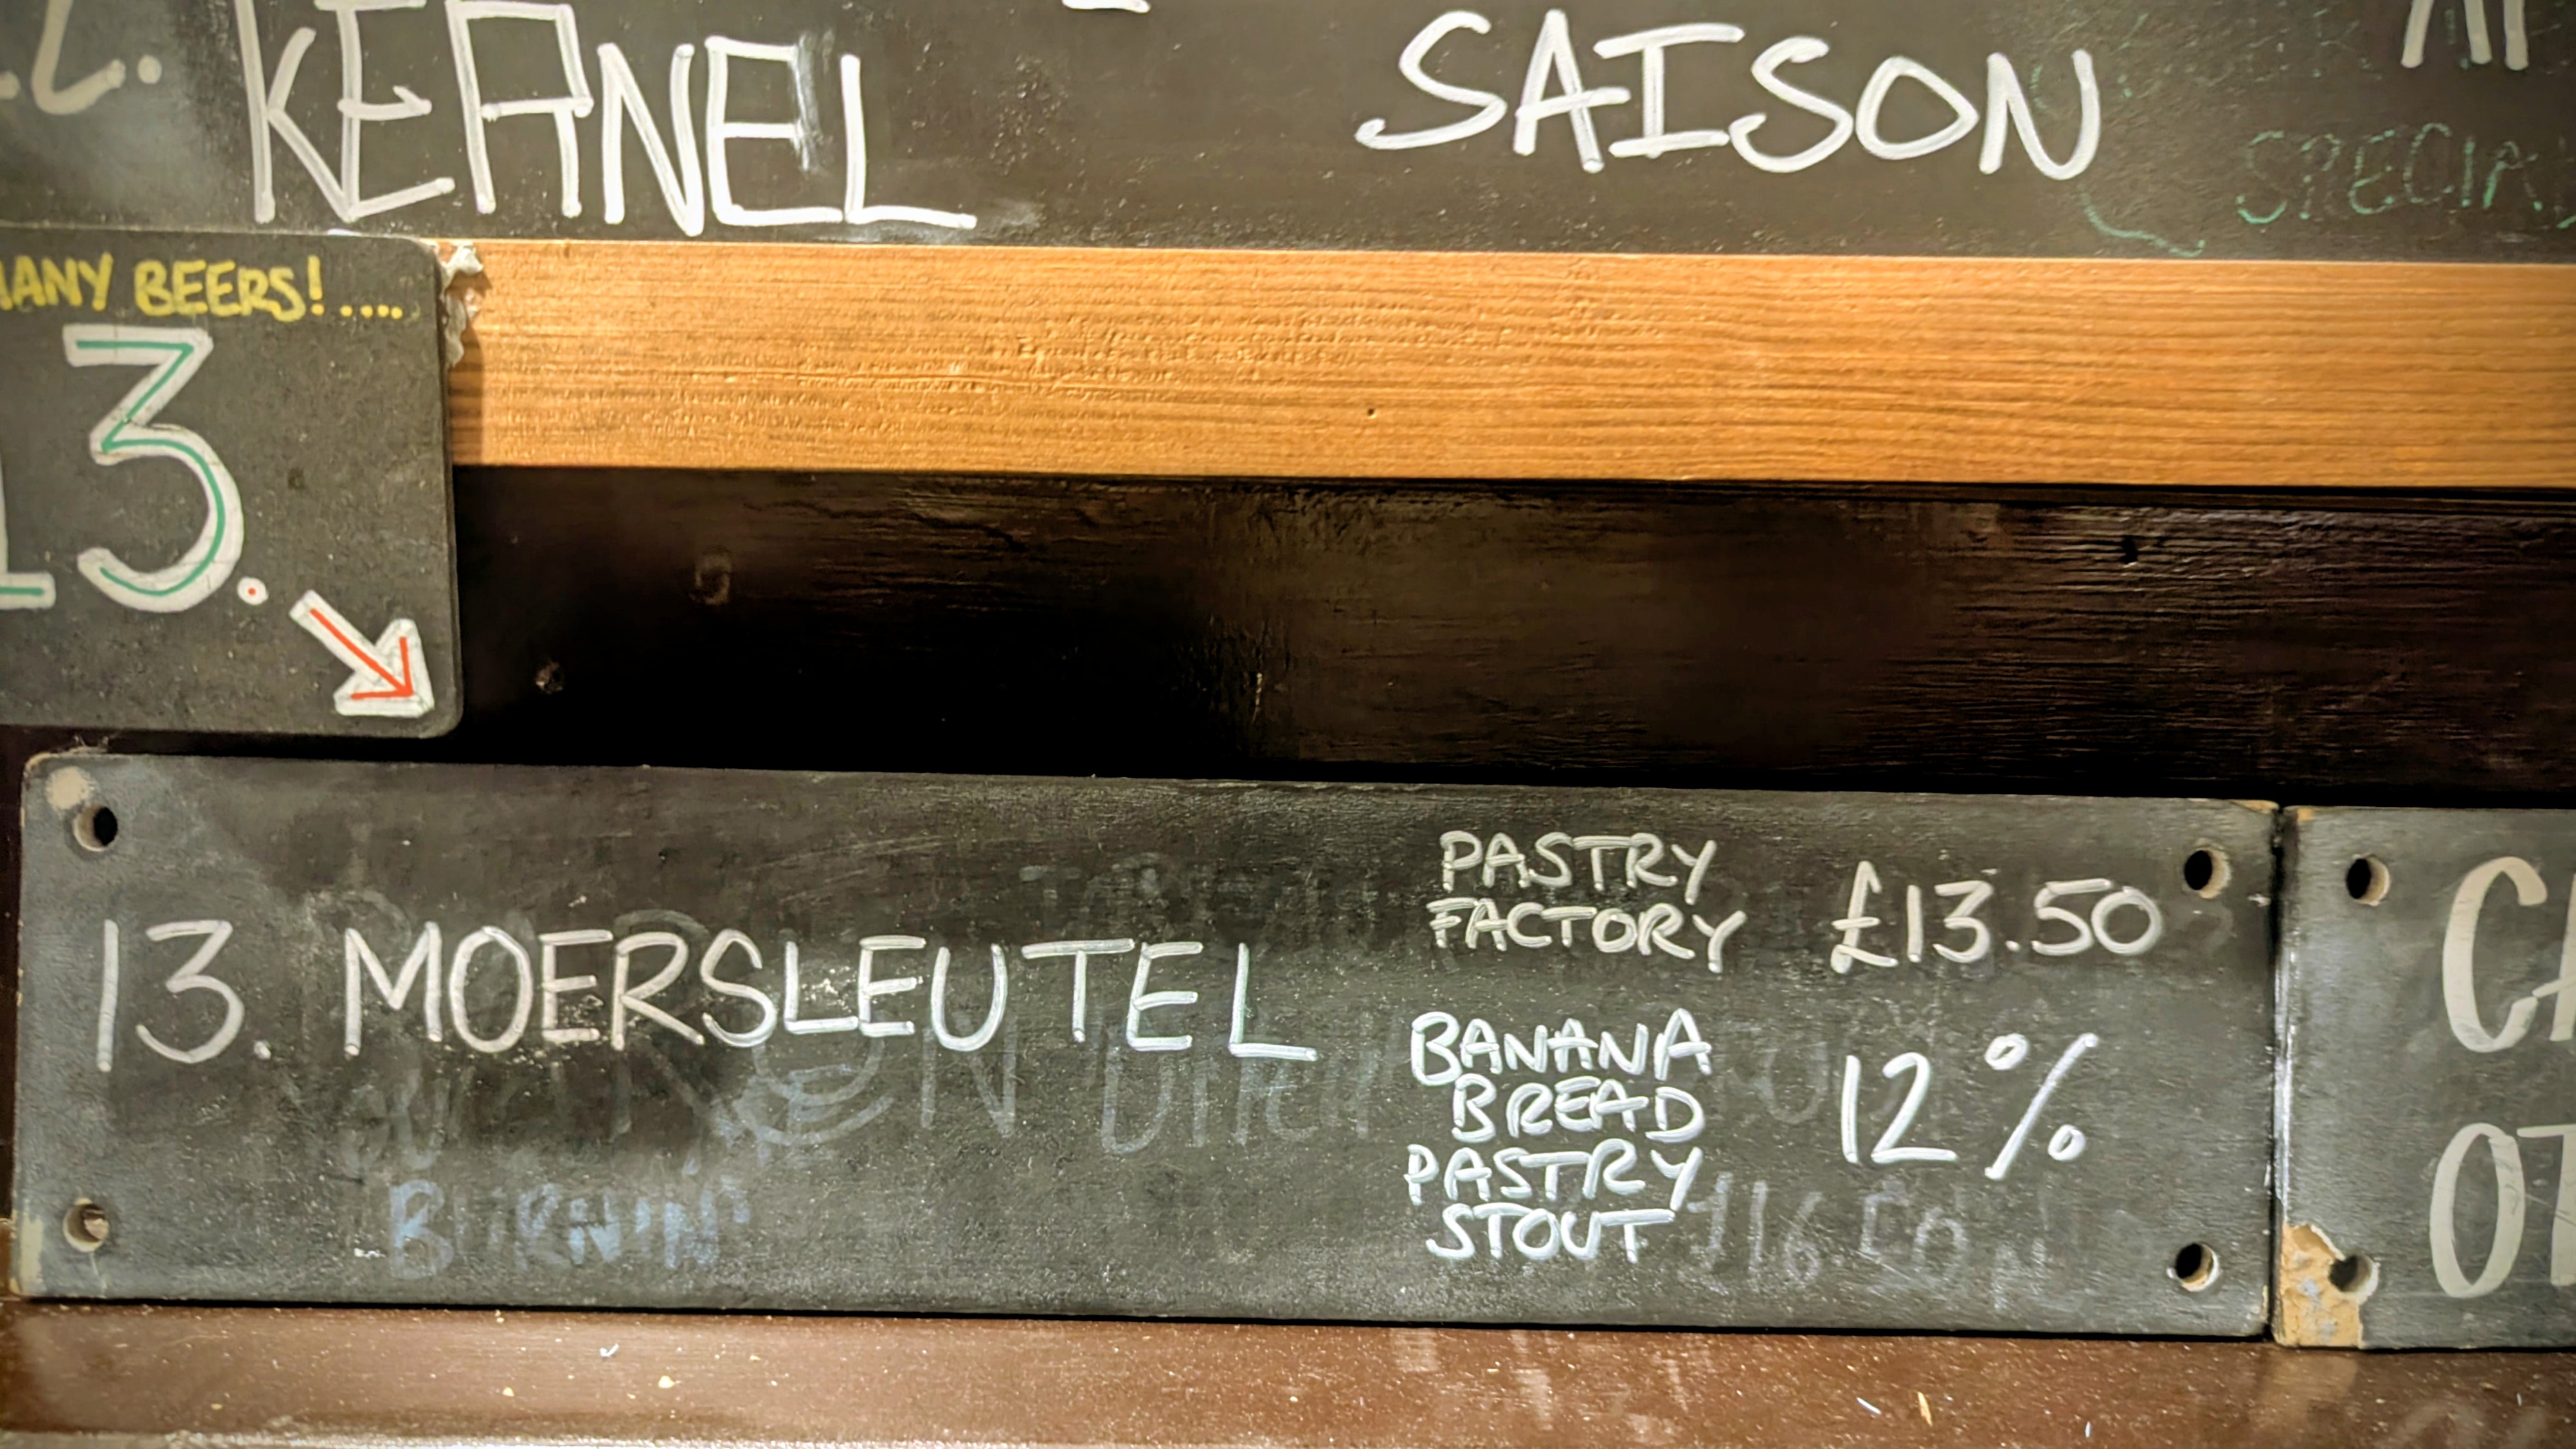 KERNEL SAISON
SPECIAL
MANY BEERS!.....
13.
13. MOERSLEUTEL
PASTRY
FACTORY
£13.50
BANANA
BREAD
PASTRY
STOUT
12%
BURNIN